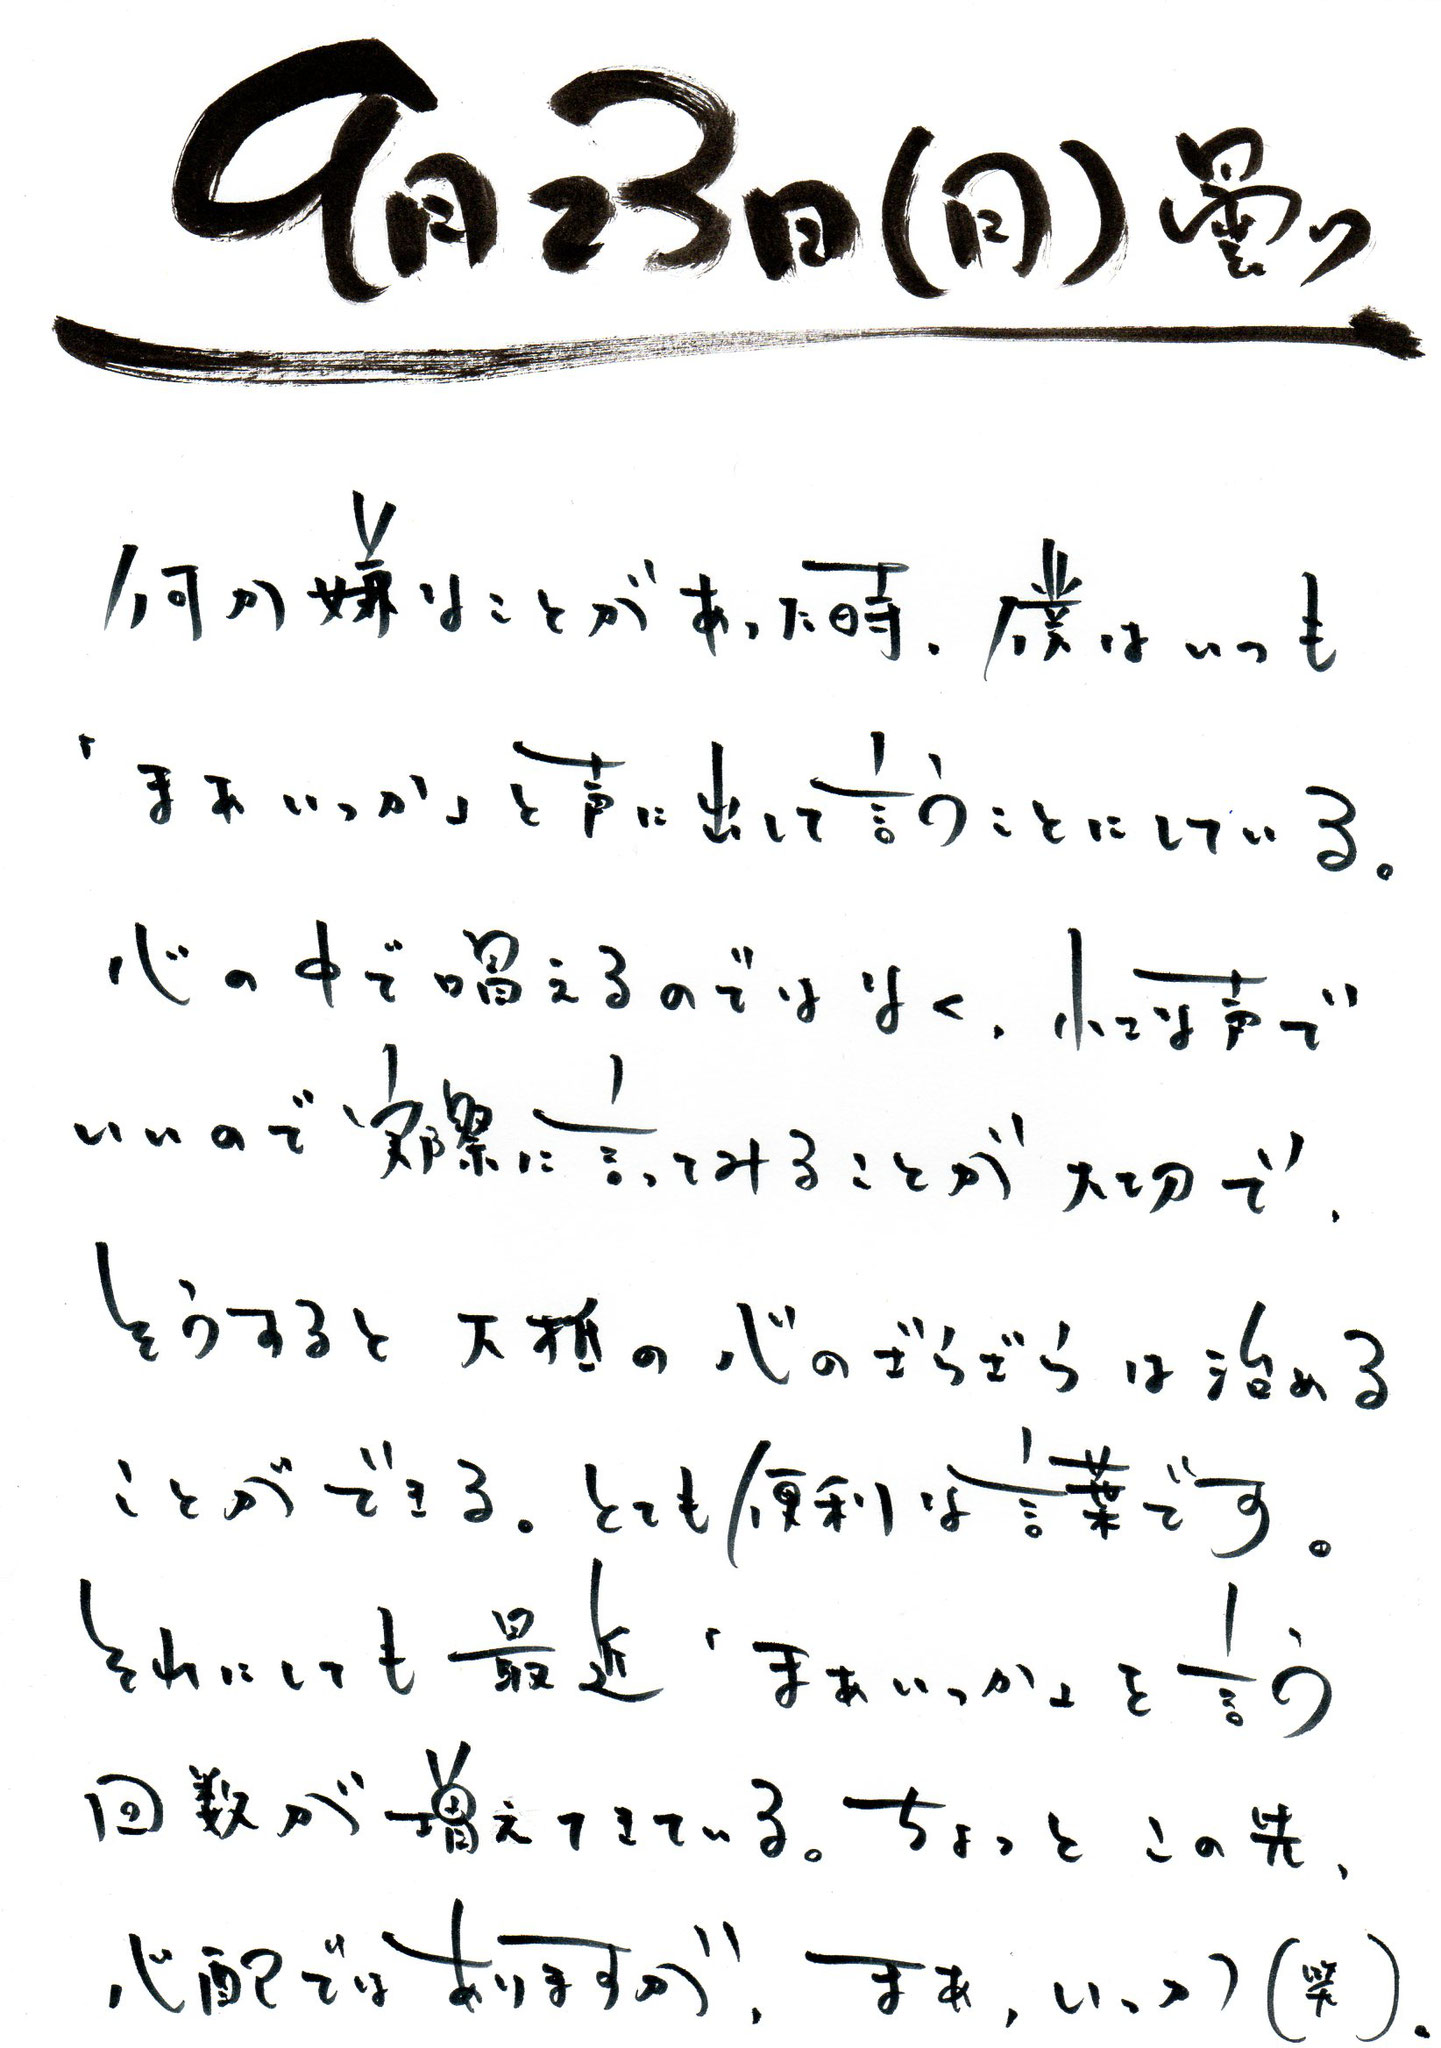 9月23日(月)曇り
何か嫌なことがあった時、僕はいつも
「まあいっか」と声に出して言うことにしている。
心の中で唱えるのではなく、小さな声で
いいので実際に言ってみることが大切で、
そうすると大抵の心のざらざらは治める
ことができる。とても便利な言葉です。
それにしても最近「まあいっか」を言う
回数が増えてきている。ちょっとこの先、
心配ではありますが、まあ、いっか(笑)。